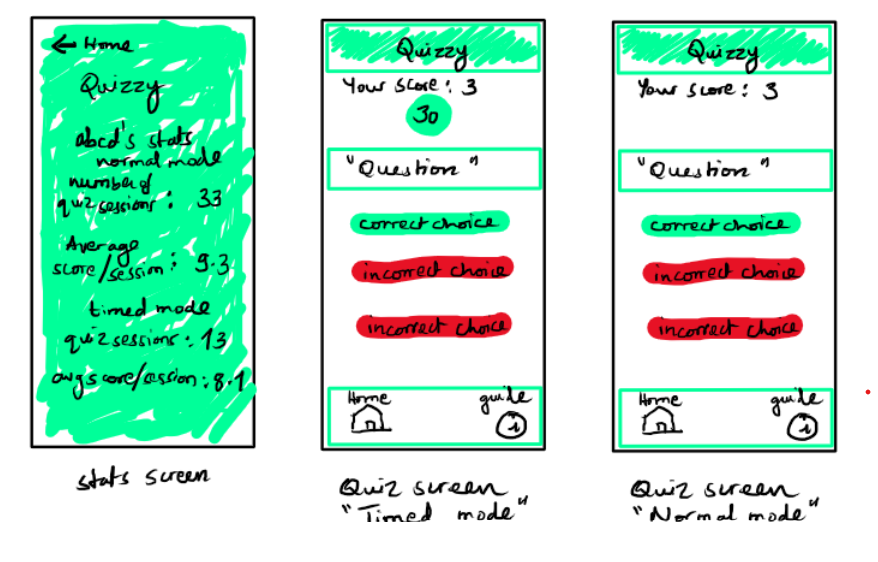 ← Home
Quizzy
abcd's stats
normal mode
number of
quiz sessions : 33
Average
score/session : 9.3
timed mode
quiz sessions : 13
avg score/session : 8.1
stats screen
Quizzy
Your score : 3
30
"Question"
correct choice
incorrect choice
incorrect choice
Home guide
i
Quiz screen
"Timed mode"
Quizzy
Your score : 3
"Question"
correct choice
incorrect choice
incorrect choice
Home guide
i
Quiz screen
"Normal mode"